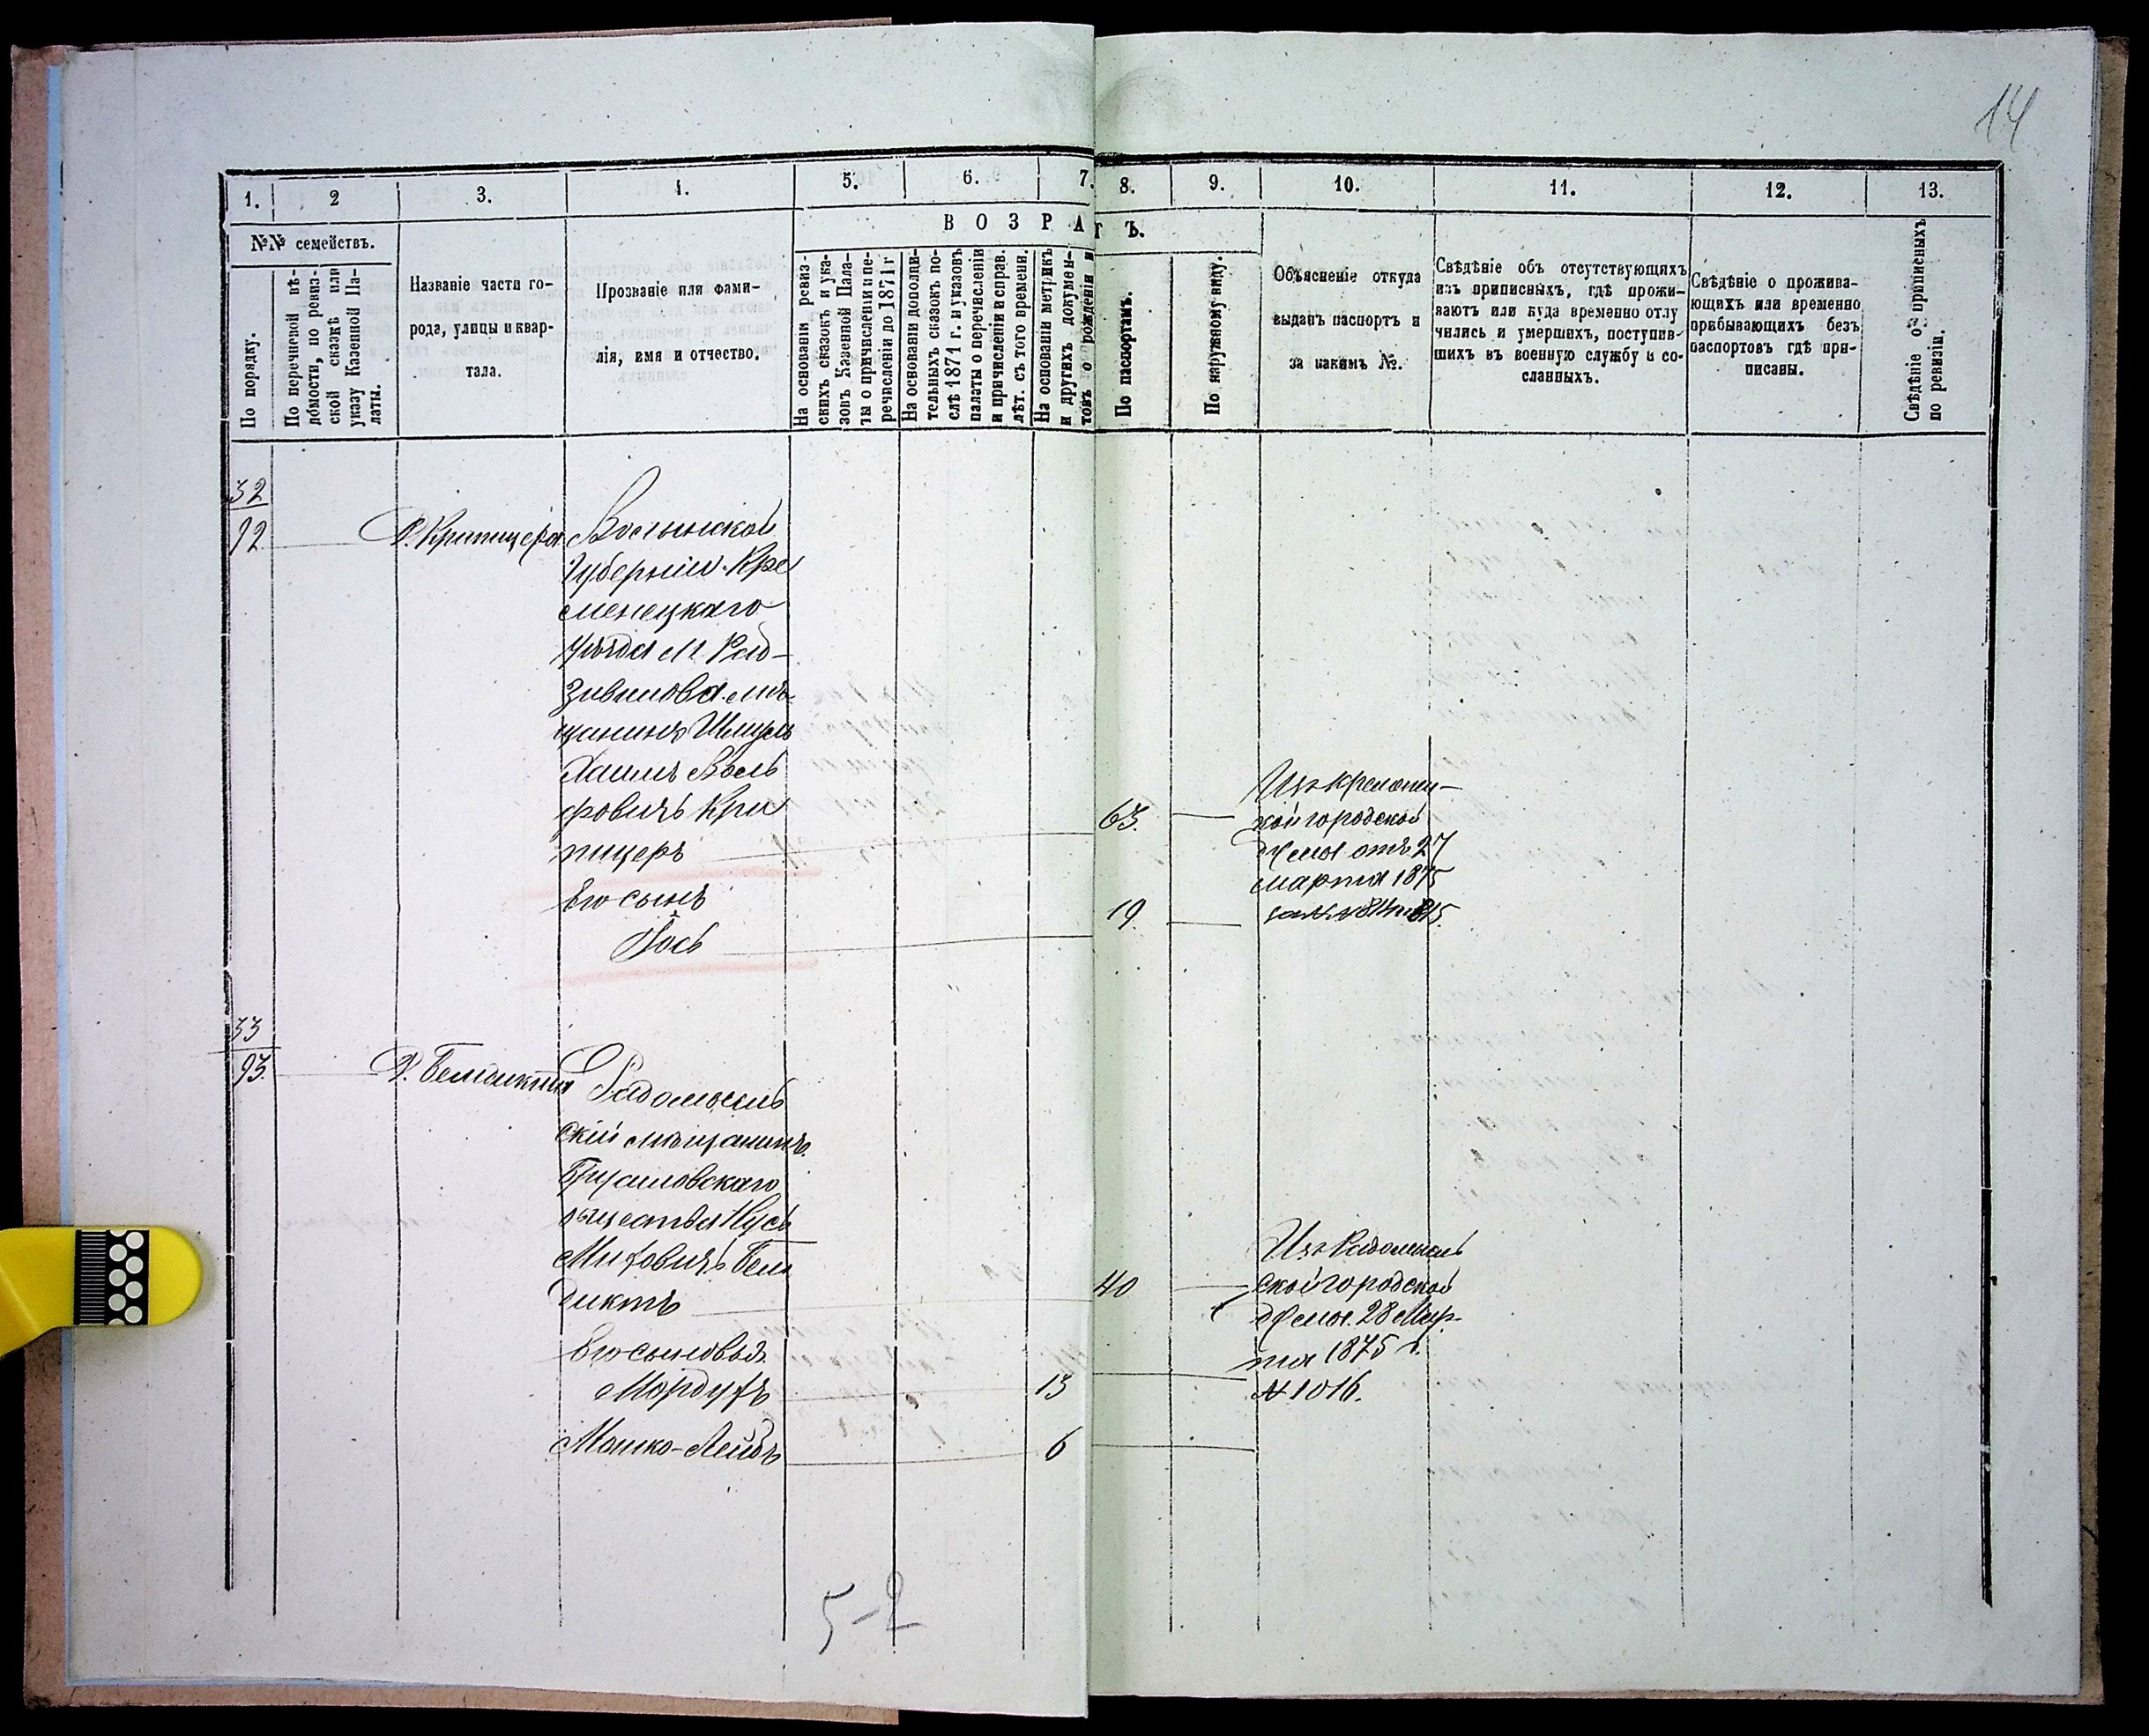 14
1. 2 3. 4. 5. 6. 7. 8. 9. 10. 11. 12. 13.
№№ семействъ.
ВОЗРАСТЪ.
По порядку.
По перечневой вѣ-
домости, по ревиз-
ской сказкѣ или
указу Казенной Па-
латы.
Названіе части го-
рода, улицы и квар-
тала.
Прозваніе или фами-
лія, имя и отчество.
На основаніи ревиз-
скихъ сказокъ и ука-
зовъ Казенной Пала-
ты о причисленіи и пе-
речисленіи до 1871 г
На основаніи дополни-
тельныхъ сказокъ по-
слѣ 1871 г. и указовъ
палаты о перечисленіи
и причисленіи и справ.
лѣт. съ того времени.
На основаніи метрикъ
и другихъ докумен-
товъ о рожденіи и
По паспортамъ.
По наружному виду.
Объясненіе откуда
выданъ паспортъ и
за какимъ №.
Свѣдѣніе объ отсутствующихъ
изъ приписныхъ, гдѣ прожи-
ваютъ или куда временно отлу
чились и умершихъ, поступив-
шихъ въ военную службу и со-
сланныхъ.
Свѣдѣніе о прожива-
ющихъ или временно
прибывающихъ безъ
паспортовъ гдѣ при-
писаны.
Свѣдѣніе о приписныхъ
по ревизіи.
32
92
Д. Крипицера
Волынской
Губерніи Кре
менецкаго
уѣзда М. Рад-
зивилова мѣ-
щанинъ Шмуль
Хаимъ Воль
фовичъ Кри
пицеръ
63.
Изъ Кременец-
кой городской
Думы отъ 27
марта 1875
за № 814 и 815.
Его сынъ
Іось
19
33
93.
Д. Бендикта
Радомысль
скій мѣщанинъ
Брусиловскаго
общества Нусь
Миховичъ Бен
диктъ
40
Изъ Радомысль
ской городской
Думы 28 Мар-
та 1875 г.
№ 1016.
Его сыновья
Мордухъ
13
Мошко-Лейбъ
6
5-2